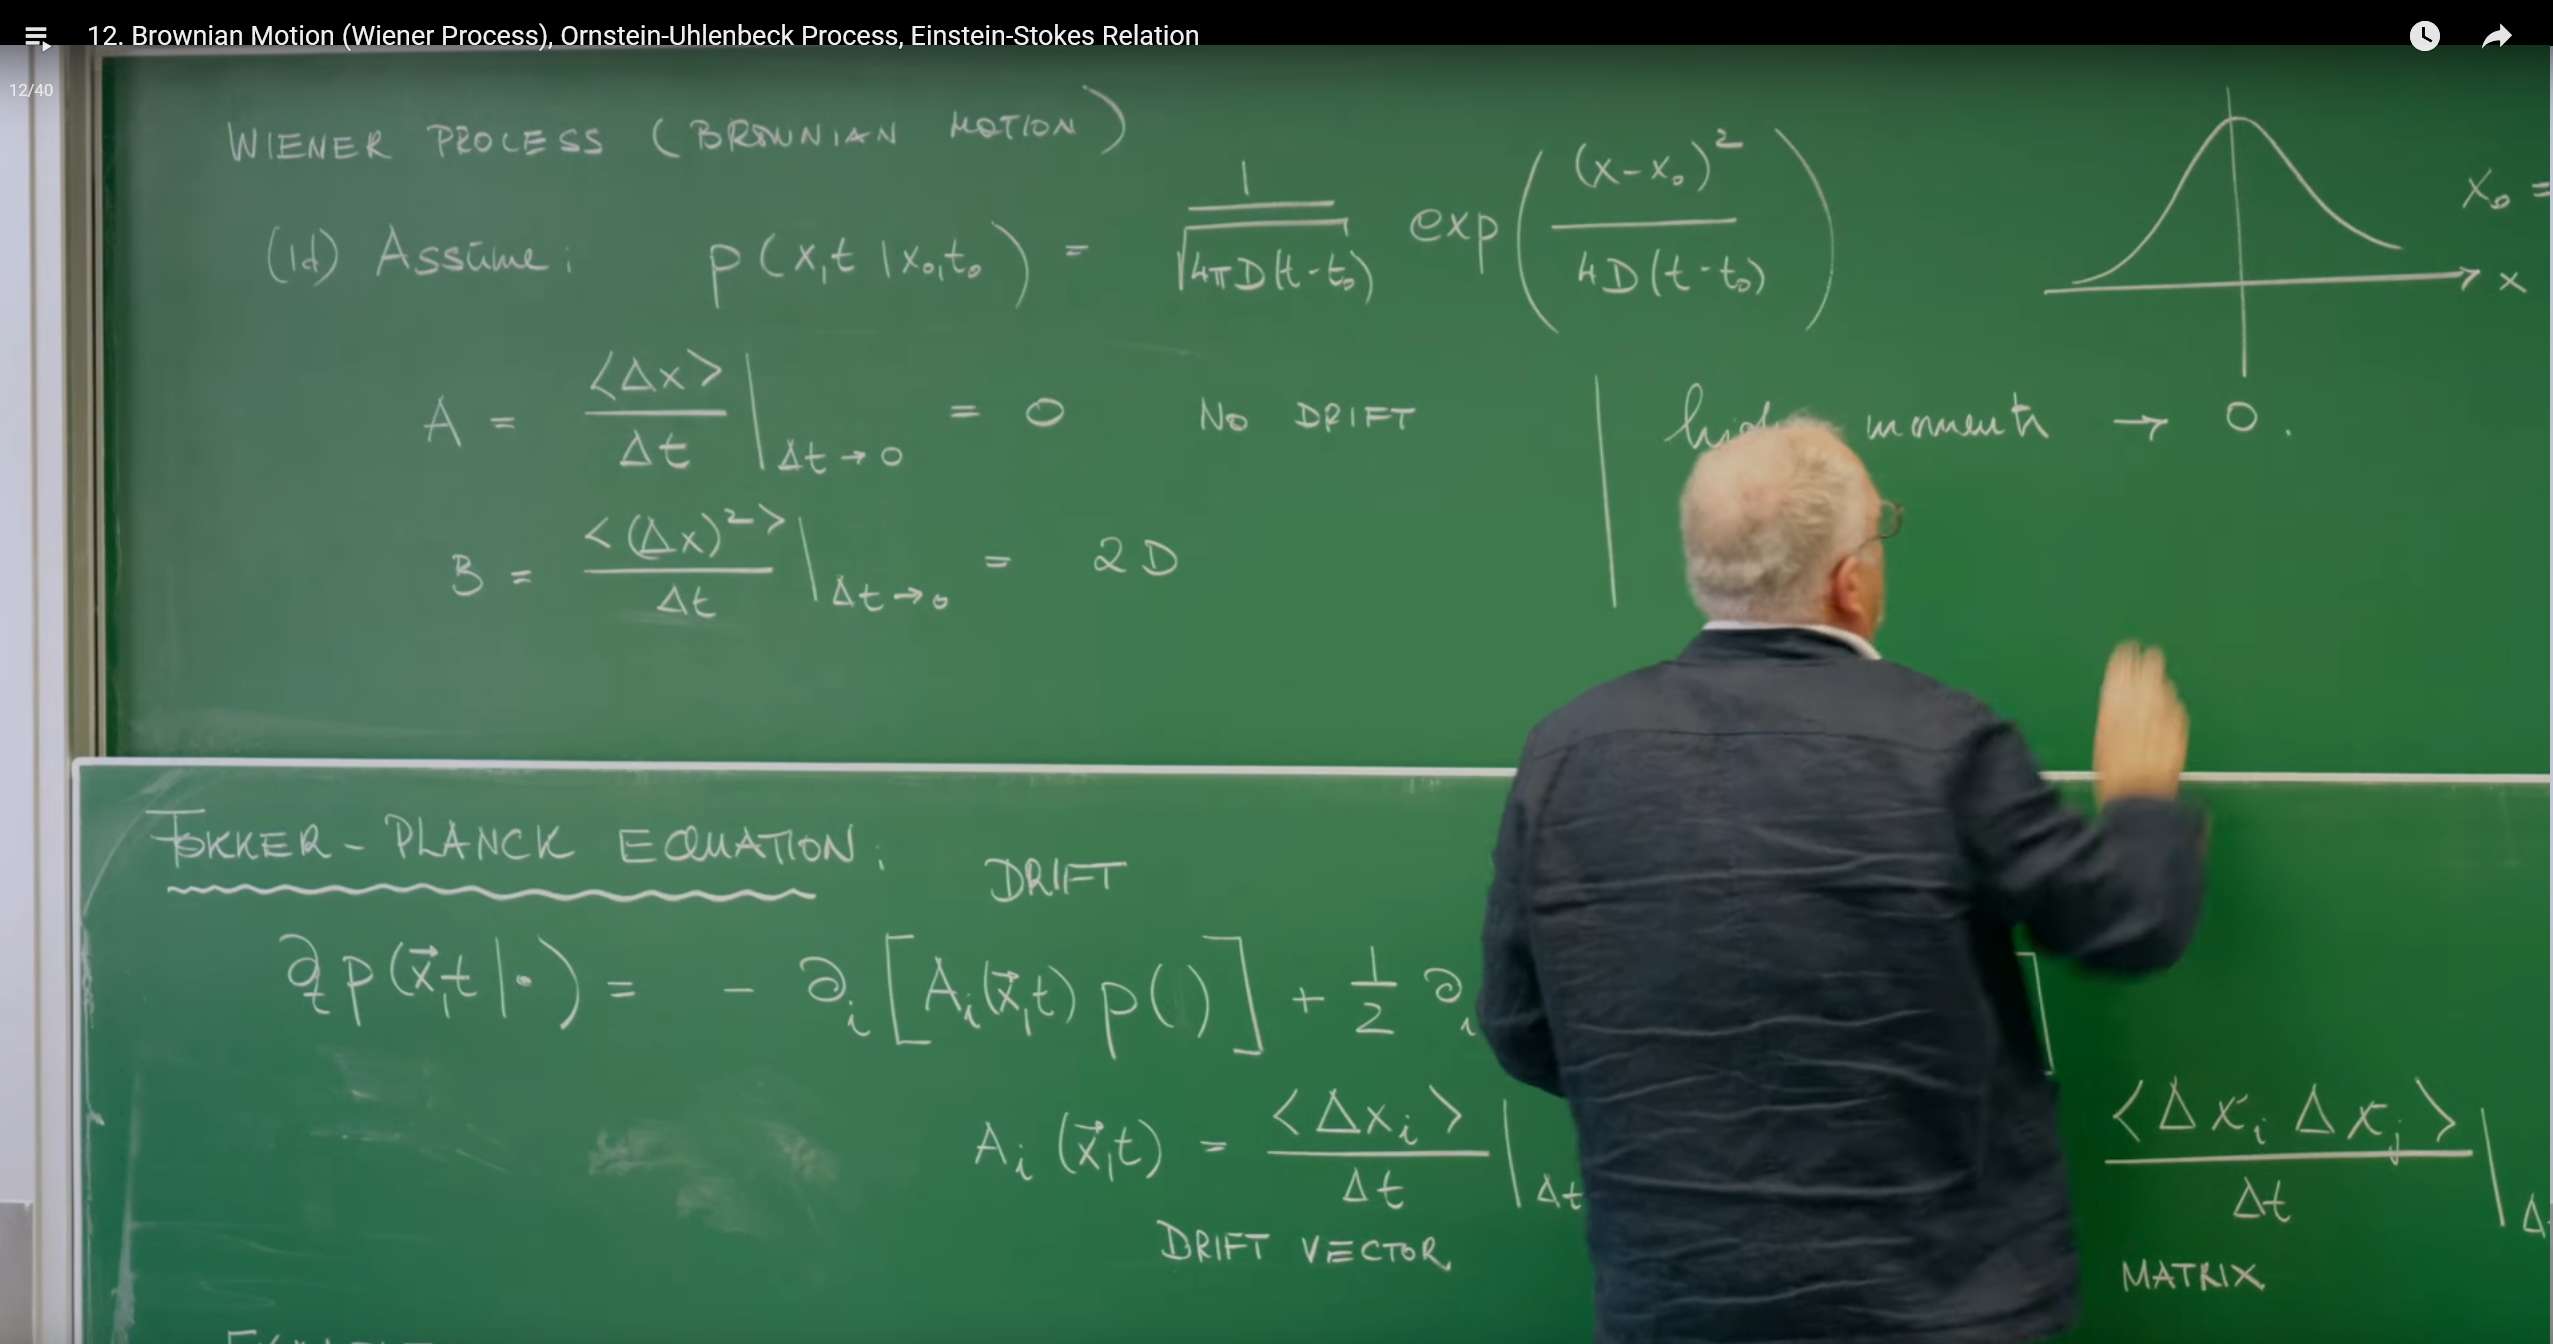 12. Brownian Motion (Wiener Process), Ornstein-Uhlenbeck Process, Einstein-Stokes Relation
12/40
WIENER PROCESS (BROWNIAN MOTION)
(1d) Assume: p(x,t|x₀,t₀) = 1/√(4πD(t-t₀)) exp((x-x₀)²/(4D(t-t₀)))
x₀ =
x
A = <Δx>/Δt |Δt→0 = 0 NO DRIFT
moments → 0.
B = <(Δx)²>/Δt |Δt→0 = 2D
FOKKER-PLANCK EQUATION:
DRIFT
∂ₜp(x⃗,t|·) = - ∂ᵢ[Aᵢ(x⃗,t) p()] + 1/2 ∂ᵢ ]
Aᵢ(x⃗,t) = <Δxᵢ>/Δt |Δt <Δxᵢ Δxⱼ>/Δt |Δ
DRIFT VECTOR
MATRIX